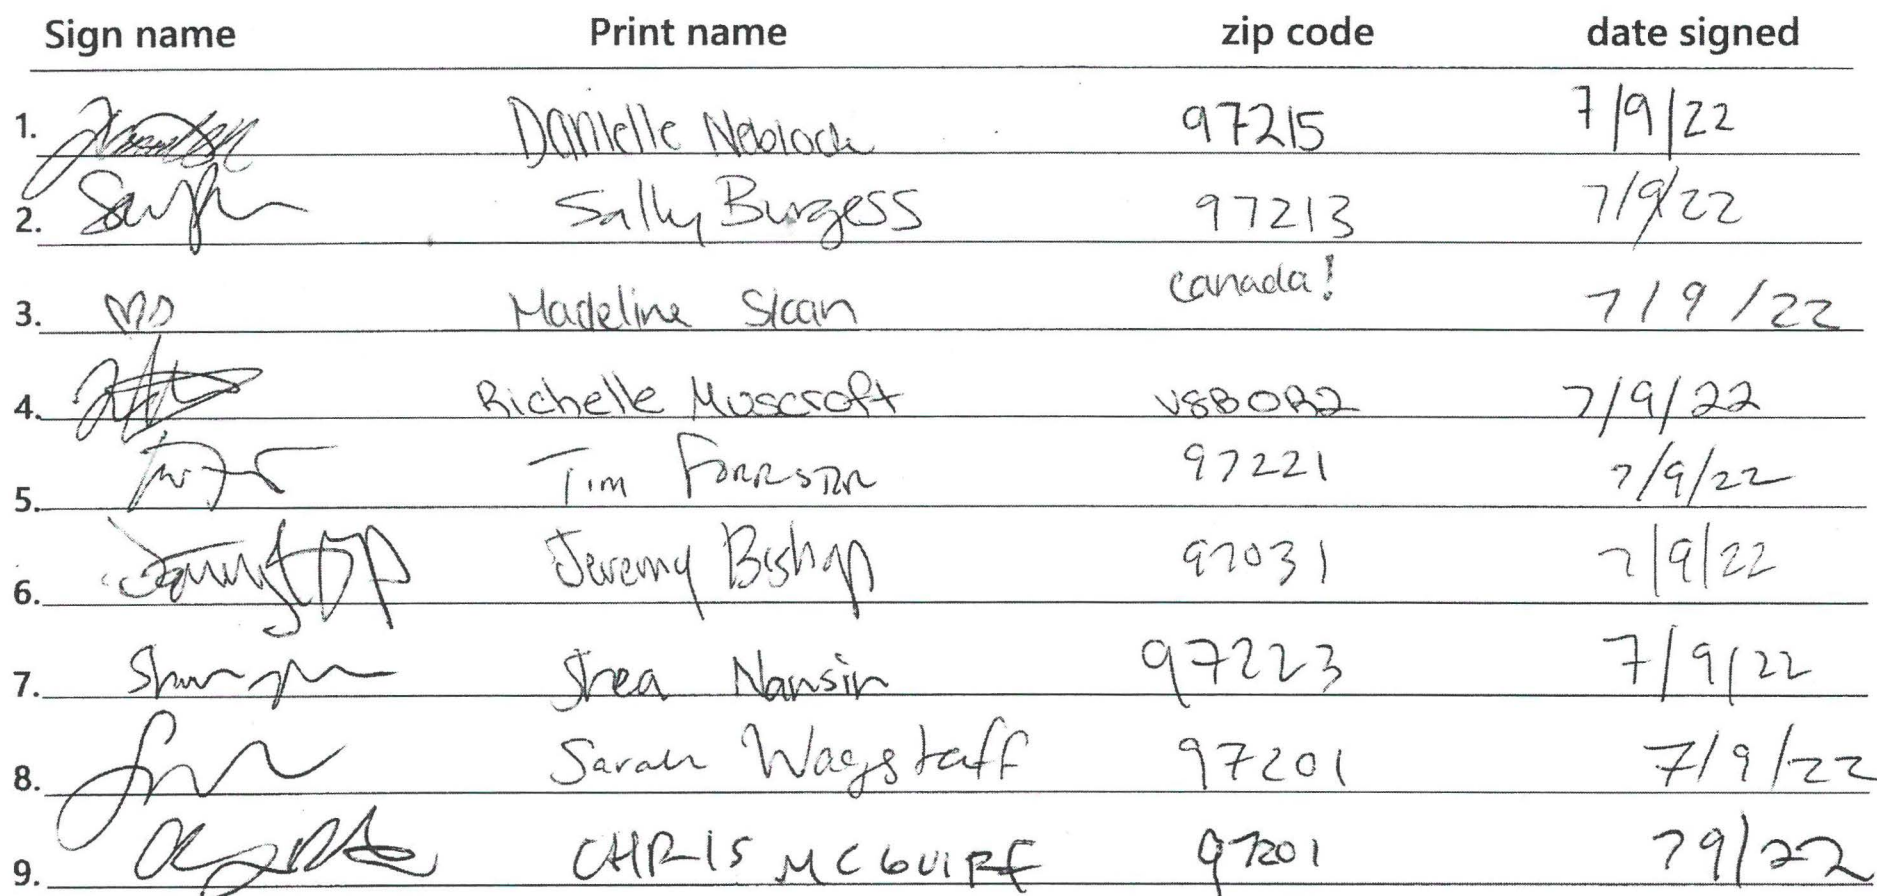 Sign name Print name zip code date signed
1. Danielle 97215 7/9/22
2. Sally Burgess 97213 7/9/22
3. Madeline Sloan canada! 7/9/22
4. Richelle Muscroft V8B0R2 7/9/22
5. Tim 97221 7/9/22
6. Jeremy Bishop 97031 7/9/22
7. Shea 97223 7/9/22
8. Sarah Wagstaff 97201 7/9/22
9. CHRIS MCGUIRE 97201 79/22